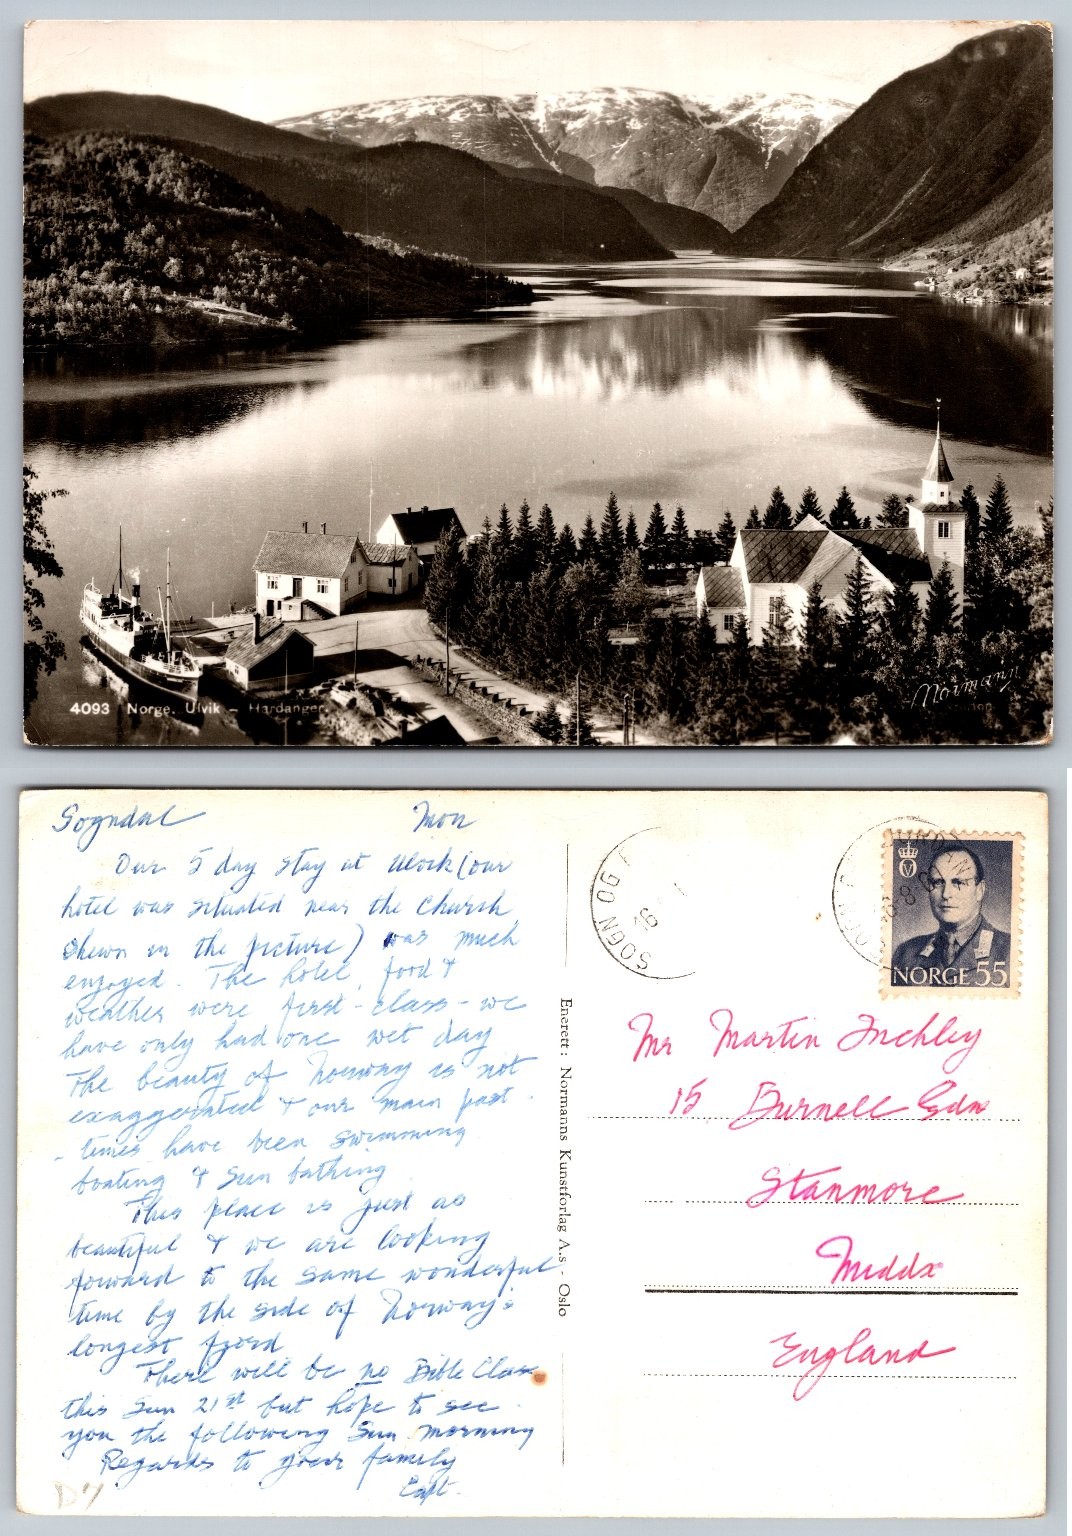 4093 Norge. Ulvik - Hardanger.
Normann
Sogndal Mon
Our 5 day stay at Ulvick (our
hotel was situated near the church
shewn in the picture) was much
enjoyed. The hotel, food &
weather were first-class - we
have only had one wet day
The beauty of Norway is not
exaggerated & our main past
- times have been swimming
boating & sun bathing
This place is just as
beautiful & we are looking
forward to the same wonderful
time by the side of Norway's
longest fjord
There will be no Bible Class
this Sun 21st but hope to see
you the following Sun. morning
Regards to your family
Capt.
D7
Enerett: Normanns Kunstforlag A.s - Oslo
SOGN OG F
16
NORGE 55
Mr Martin Inchley
15 Burnell Gdns
Stanmore
Middx
England